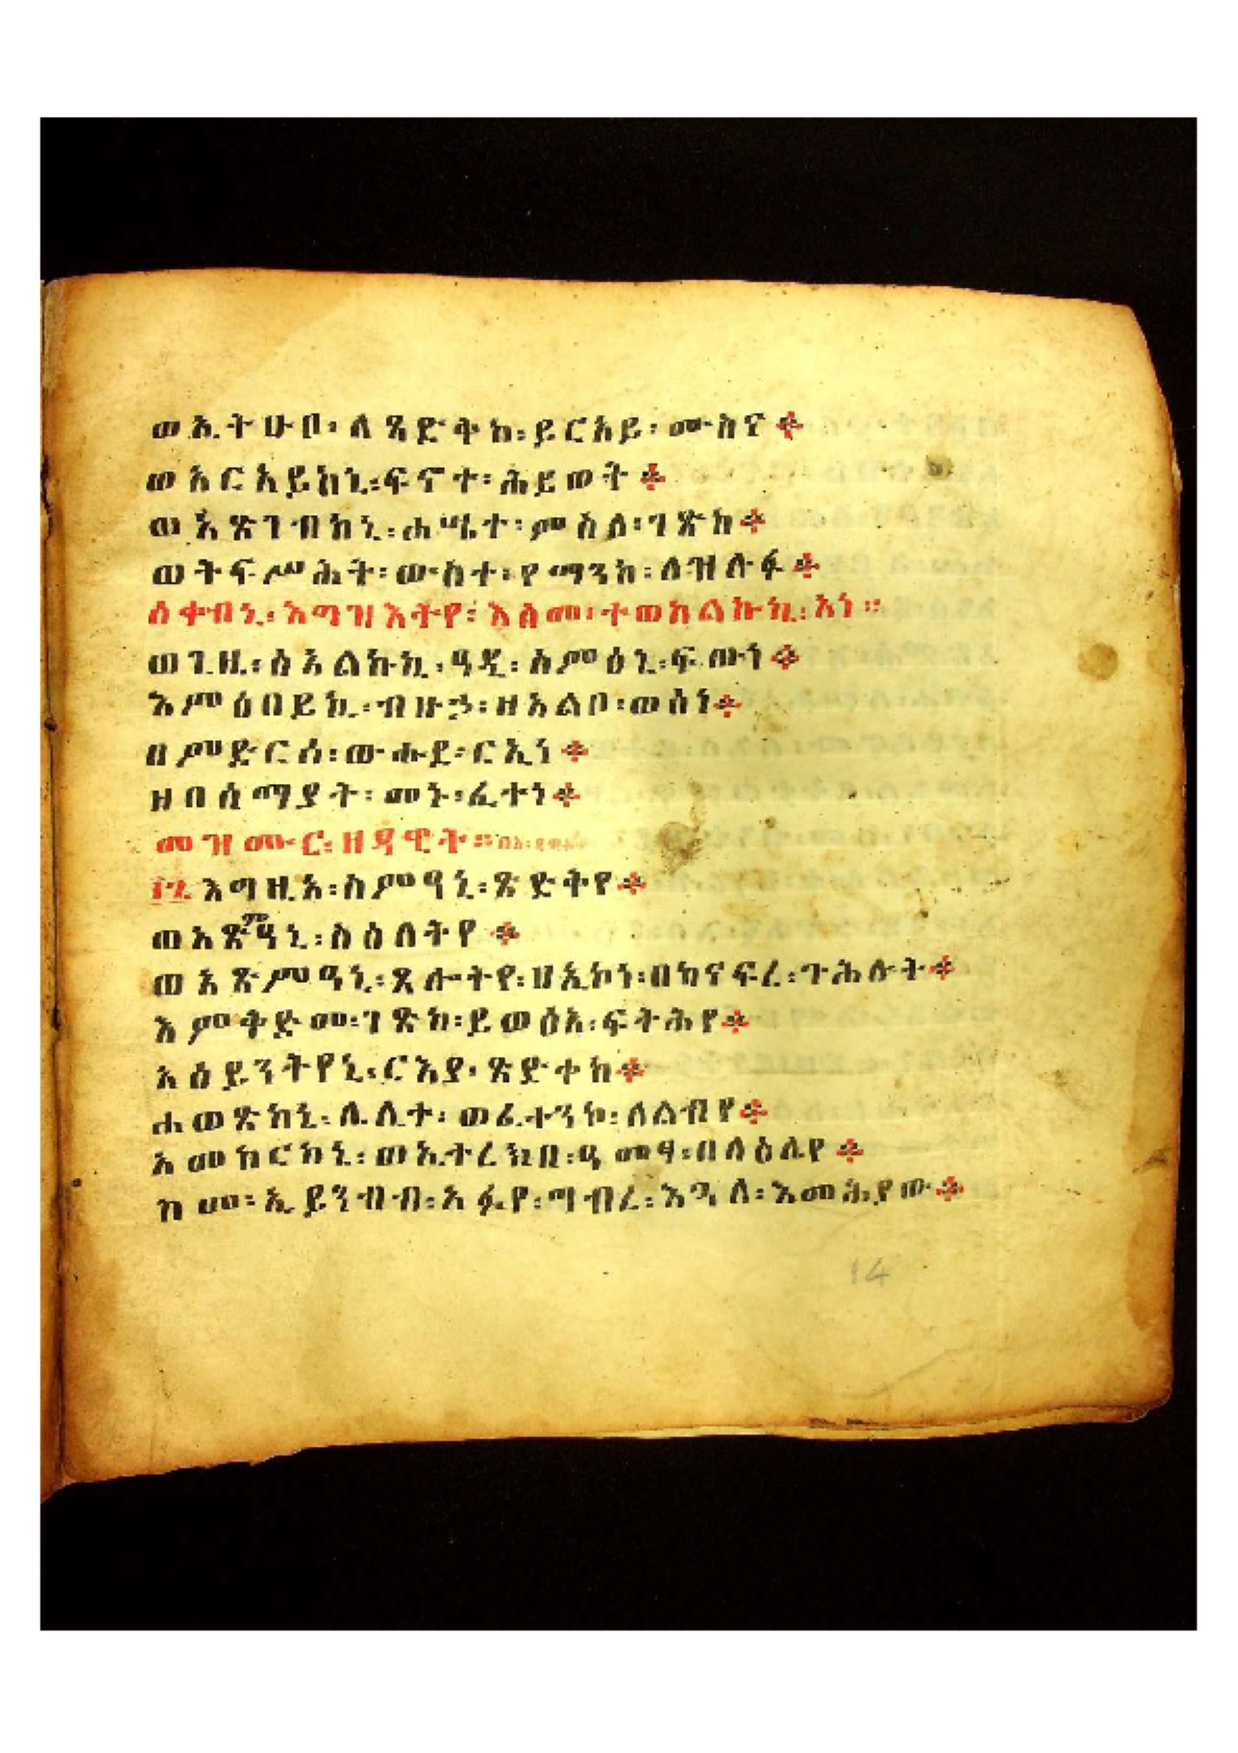 ወኢትሁቦ፡ለጻድቅከ፡ይርአይ፡ሙስና
ወአርአይከኒ፡ፍኖተ፡ሕይወት
ወአጽገብከኒ፡ሐሤተ፡ምስለ፡ገጽከ
ወትፍሥሕት፡ውስተ፡የማንከ፡ለዝሉፉ
ሰቀብኒ፡እግዝእትየ፡እስመ፡ተወከልኩኪ፡አነ።
ወጊዜ፡ስእልኩኪ፡ዓዲ፡ስምዕኒ፡ፍጡነ
እምዕበይኪ፡ብዙኃ፡ዘአልቦ፡ወሰነ
ዘምድርሰ፡ውሑደ፡ርኢነ
ዘበሰማያት፡መኑ፡ፈተነ
መዝሙር፡ዘዳዊት።
፲፮ እግዚአ፡ስምዓኒ፡ጽድቅየ
ወአጽምዓኒ፡ስዕለትየ
ወአጽምዓኒ፡ጸሎትየ፡ዘኢኮነ፡በከናፍረ፡ጉሕሉት
እምቅድመ፡ገጽከ፡ይወፅእ፡ፍትሕየ
አዕይንትየኒ፡ርእያ፡ጽድቀከ
ሐወጽከኒ፡ሌሊተ፡ወፈተንኮ፡ለልብየ
አመከርከኒ፡ወኢተረክበ፡ዓመፃ፡በላዕሌየ
ከመ፡ኢይንብብ፡አፉየ፡ግብረ፡እጓለ፡እመሕያው
14